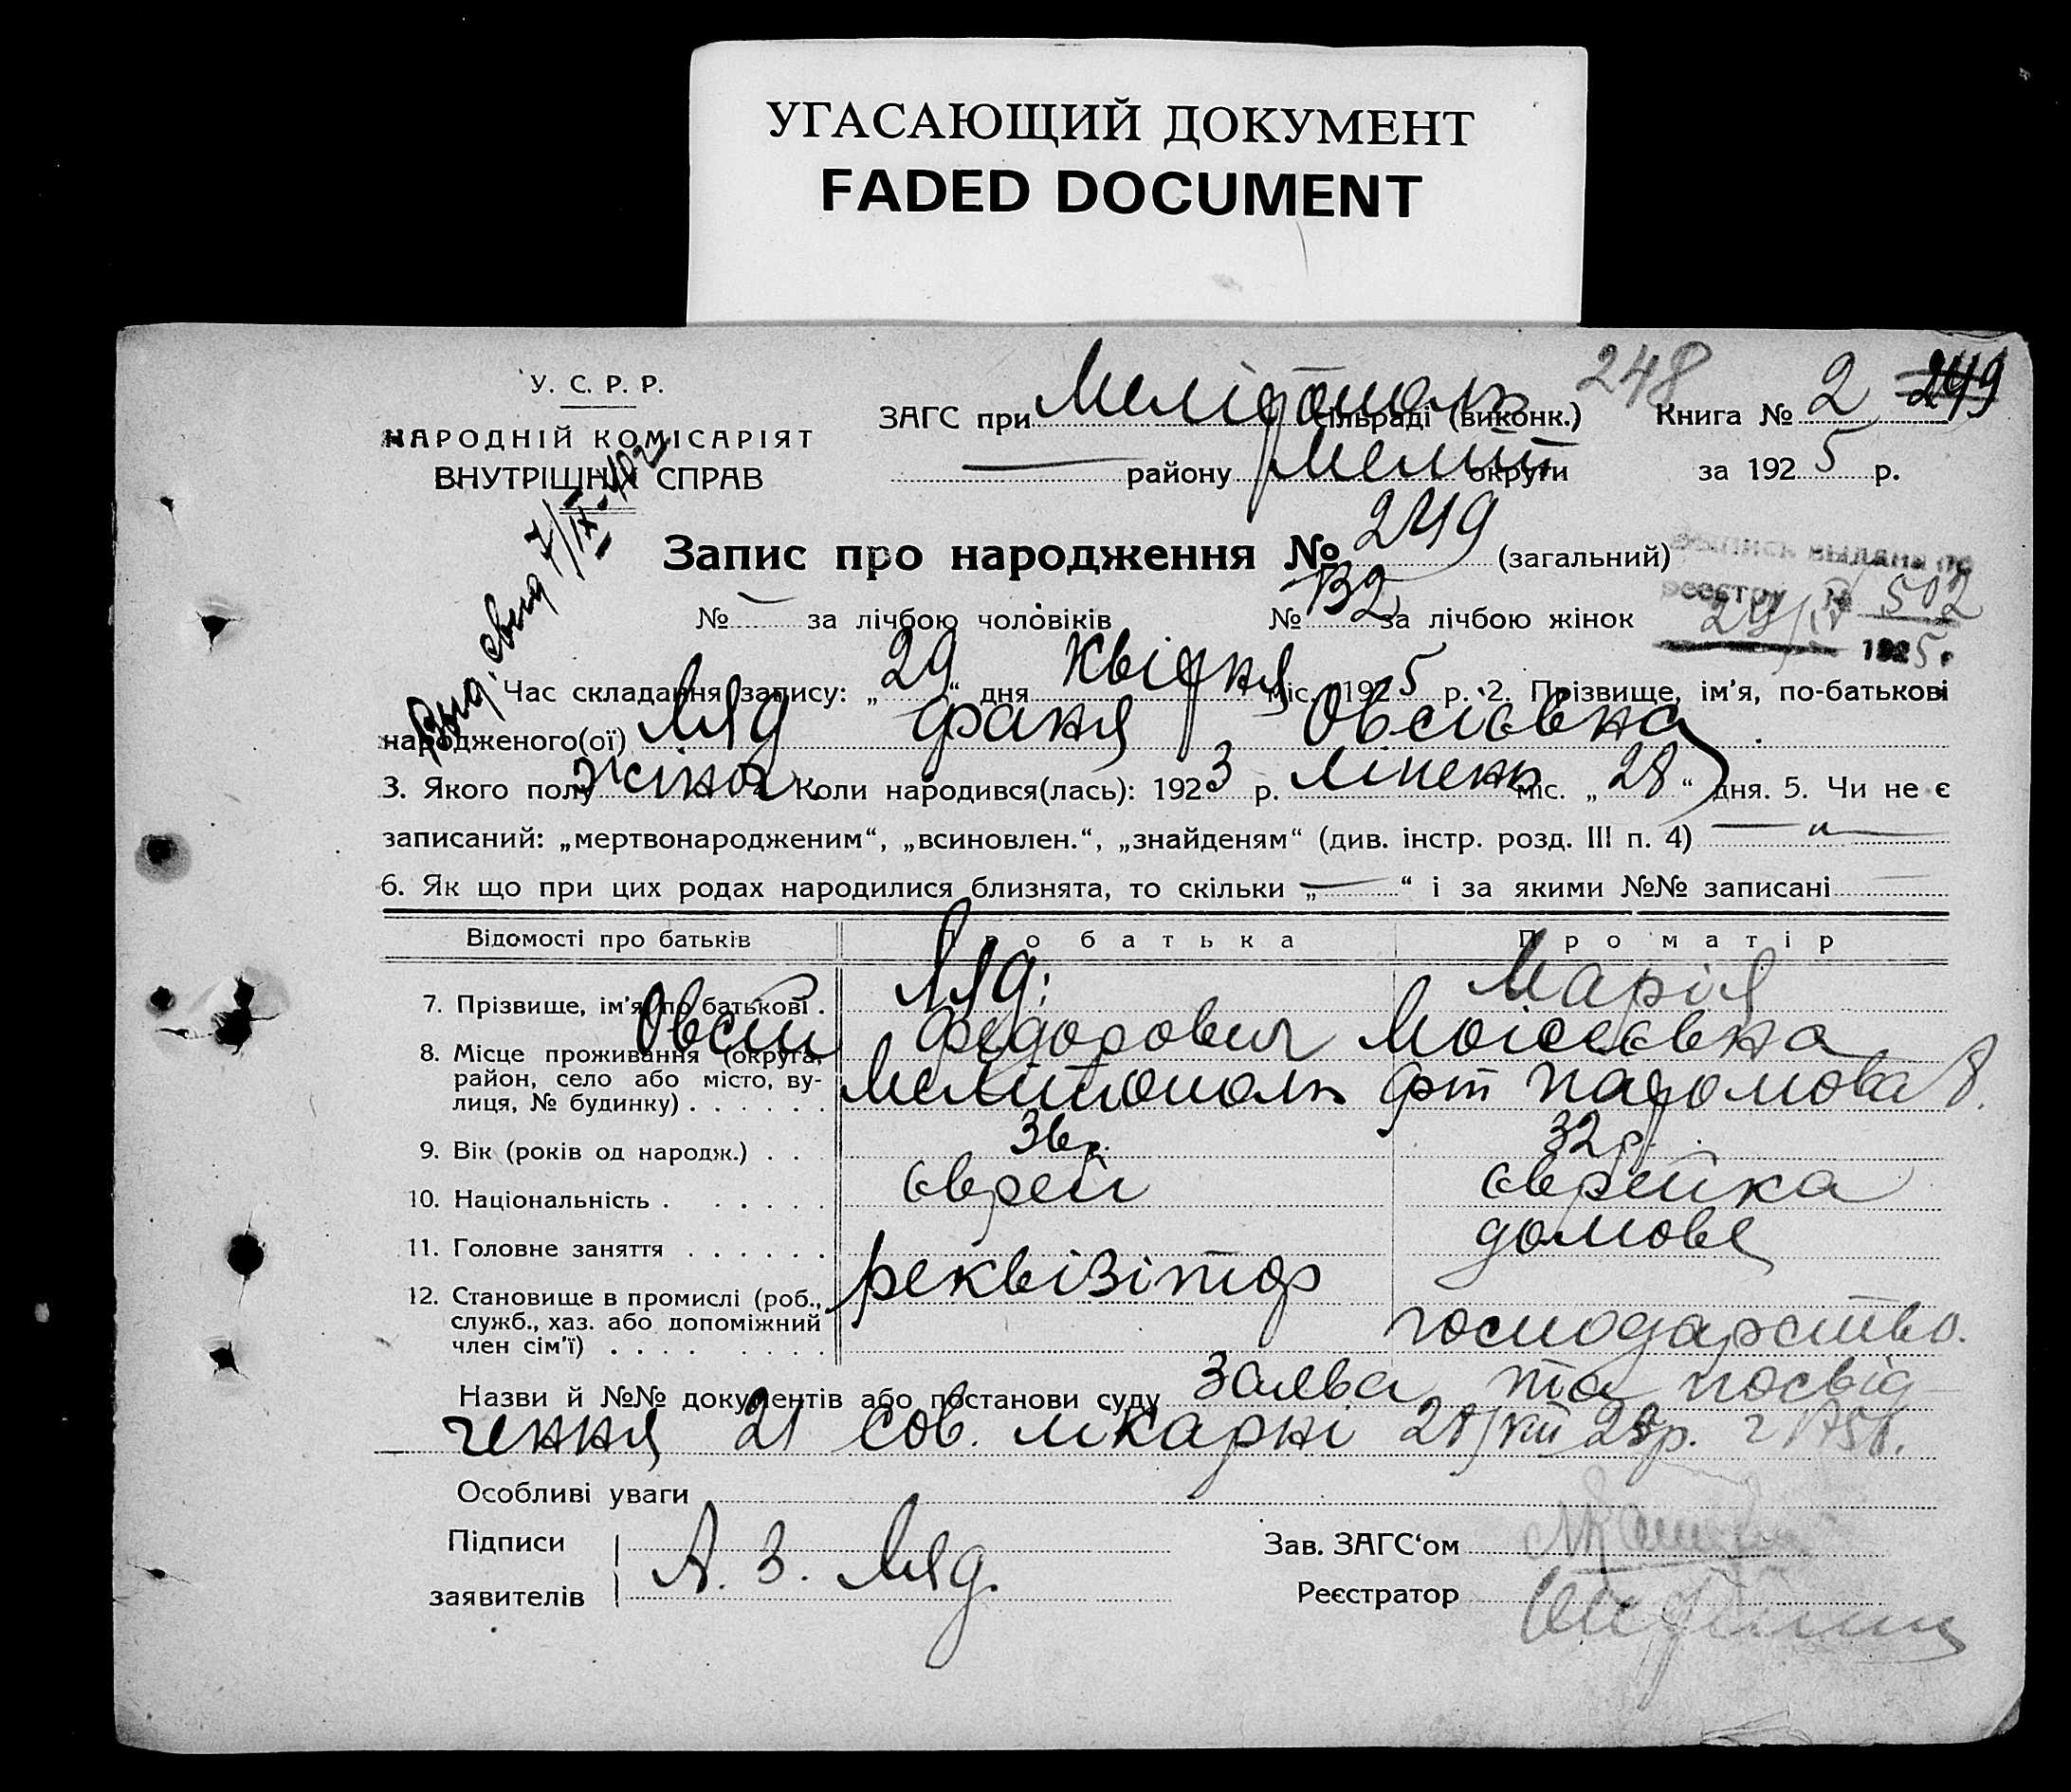 УГАСАЮЩИЙ ДОКУМЕНТ
FADED DOCUMENT
У. С. Р. Р.
НАРОДНІЙ КОМІСАРІЯТ
ВНУТРІШНІХ СПРАВ
248
249
ЗАГС при Мелітополь сільраді (виконк.) Книга № 2
— району Меліт округи за 1925 р.
Запис про народження № 249 (загальний)
№ — за лічбою чоловіків № 132 за лічбою жінок
выдана по
реестру № 502
29/IV 1925 г
Выд. свид 7/IX-
Час складання запису: „29“ дня Квітня міс. 1925 р. 2. Прізвище, ім’я, по-батькові
народженого(ої) Ляд Фаня Овсієвна
3. Якого полу жіноч. Коли народився(лась): 1923 р. ліпень міс. „28“ дня. 5. Чи не є
записаний: „мертвонародженим“, „всиновлен.“, „знайденям“ (див. інстр. розд. III п. 4) — „ —
6. Як що при цих родах народилися близнята, то скільки „—“ і за якими №№ записані —
Відомості про батьків Про батька Про матір
7. Прізвище, ім’я, по батькові . Ляд: Марія
Овсій Федорович Моісеєвна
8. Місце проживання (округа, район, село або місто, вулиця, № будинку) . . . . . . Мелітополь 8.
9. Вік (років од народж.) . . . 36 р. 32 р.
10. Національність . . . . . . єврей єврейка
11. Головне заняття . . . . . . реквізітор домове
12. Становище в промислі (роб., служб., хаз. або допоміжний член сім’ї) . . . . . . . . господарство.
Назви й №№ документів або постанови суду заява та посвід-
чення 21 сов. лікарні
Особливі уваги
Підписи
заявителів А. З. Ляд.
Зав. ЗАГС‘ом
Реєстратор